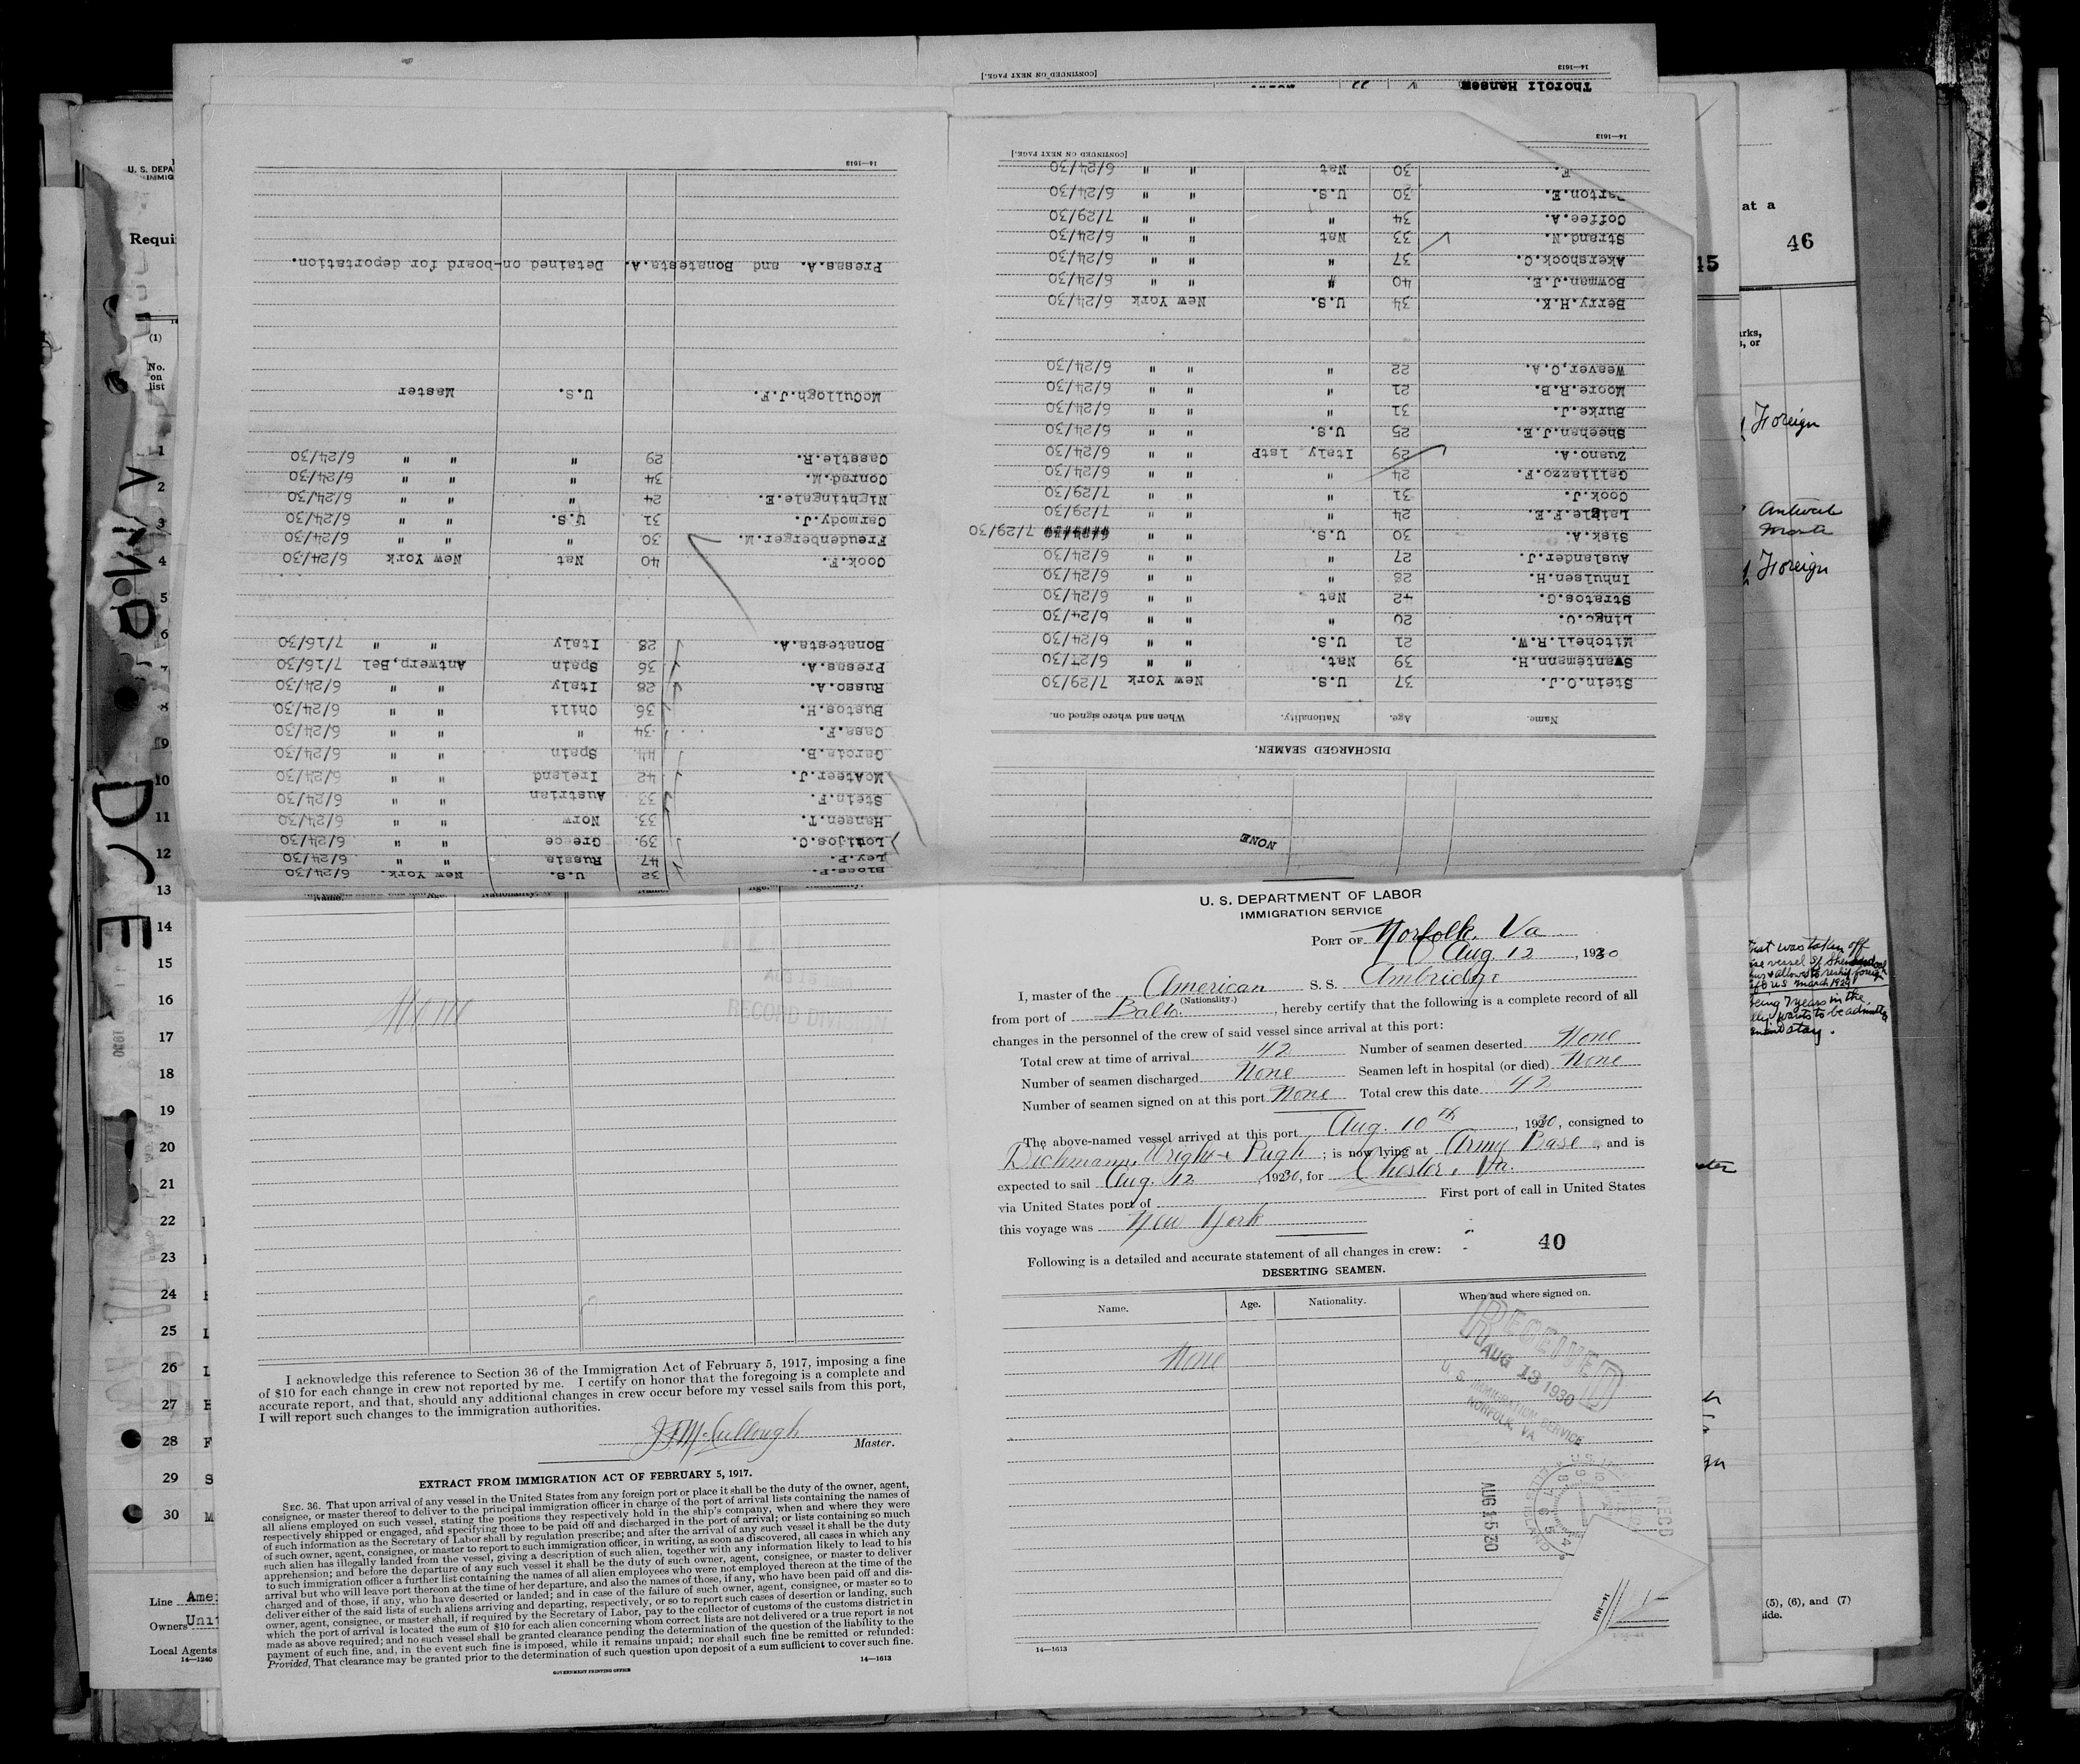 U. S. DEPARTMENT OF LABOR
IMMIGRATION SERVICE
PORT OF Norfolk, Va
Aug. 12, 1930
I, master of the American S. S. Ambridge
(Nationality.)
from port of Balto., hereby certify that the following is a complete record of all
changes in the personnel of the crew of said vessel since arrival at this port:
Total crew at time of arrival 42 Number of seamen deserted None
Number of seamen discharged None Seamen left in hospital (or died) None
Number of seamen signed on at this port None Total crew this date 42
The above-named vessel arrived at this port Aug. 10th, 1930, consigned to
Dichmann, Wright & Pugh; is now lying at Army Base, and is
expected to sail Aug. 12, 1930, for Chester, Pa.
via United States port of First port of call in United States
this voyage was New York
Following is a detailed and accurate statement of all changes in crew:
40
DESERTING SEAMEN.
Name. Age. Nationality. When and where signed on.
None
RECEIVED
AUG 13 1930
U. S. IMMIGRATION SERVICE
NORFOLK, VA
AUG 15 30
REC'D
14—1613
14—1613
NONE
DISCHARGED SEAMEN.
Name. Age. Nationality. When and where signed on.
Stein.O.J. 37 U.S. New York 7/29/30
Swantemann.H. 39 Nat. " " 6/27/30
Mitchell.R.W. 21 U.S. " " 6/24/30
Lingo.O. 20 " " " 6/24/30
Stratos.G. 42 Nat " " 6/24/30
Inhulsen.H. 28 " " " 6/24/30
Auslander.J. 27 " " " 6/24/30
Sisk.A. 30 U.S. " " 7/29/30
Laigle.F.E. 24 " " " 7/29/30
Cook.J. 31 " " " 7/29/30
Galliazzo.F. 24 " " " 6/24/30
Zuano.A. 29 Italy 1stP " " 6/24/30
Sheehen.J.E. 25 U.S. " " 6/24/30
Burke.J. 31 " " " 6/24/30
Moore.R.B. 21 " " " 6/24/30
Weaver,C.A. 22 " " " 6/24/30
Berry.H.K. 34 U.S. New York 6/24/30
Bowman.J.E. 40 " " " 6/24/30
Akershock.C. 37 " " " 6/24/30
Strand.N. 33 Nat " " 6/24/30
Coffee.A. 34 " " " 7/29/30
arton.E. 30 U.S. " " 6/24/30
F. 30 Nat " " 6/24/30
[CONTINUED ON NEXT PAGE.]
14—1613
Thorolf Hansen
[CONTINUED ON NEXT PAGE.]
14—1613
Bloss.P. 32 U.S. New York. 6/24/30
Ley.P. 47 Russia " " 6/24/30
Loujos.C. 39. Greece " " 6/24/30
Hansen.T. 33. Norw " " 6/24/30
Stein.F. 33 Austrian " " 6/24/30
McAteer.J. 42 Ireland " " 6/24/30
Garcia.B. 44 Spain " " 6/24/30
Casa.F. 34 " " " 6/24/30
Bustos.H. 36 Chili " " 6/24/30
Russo.A. 28 Italy " " 6/24/30
Presas.A. 36 Spain Antwerp,Bel 7/16/30
Bonatesta.A. 28 Italy " " 7/16/30
Cook.F. 40 Nat New York 6/24/30
Freudenberger.M. 30 " " " 6/24/30
Carmody.J. 31 U.S. " " 6/24/30
Nightingale.E. 24 " " " 6/24/30
Conrad.M. 34 " " " 6/24/30
Casstle.R. 29 " " " 6/24/30
McCullogh.J.F. U.S. Master
Presas.A. and Bonatesta.A. Detained on-board for deportation.
14—1613
Name. Age. Nationality.
AUG 15 1930
RECORD DIVISION
I acknowledge this reference to Section 36 of the Immigration Act of February 5, 1917, imposing a fine
of $10 for each change in crew not reported by me. I certify on honor that the foregoing is a complete and
accurate report, and that, should any additional changes in crew occur before my vessel sails from this port,
I will report such changes to the immigration authorities.
J F McCullough
Master.
EXTRACT FROM IMMIGRATION ACT OF FEBRUARY 5, 1917.
SEC. 36. That upon arrival of any vessel in the United States from any foreign port or place it shall be the duty of the owner, agent,
consignee, or master thereof to deliver to the principal immigration officer in charge of the port of arrival lists containing the names of
all aliens employed on such vessel, stating the positions they respectively hold in the ship's company, when and where they were
respectively shipped or engaged, and specifying those to be paid off and discharged in the port of arrival; or lists containing so much
of such information as the Secretary of Labor shall by regulation prescribe; and after the arrival of any such vessel it shall be the duty
of such owner, agent, consignee, or master to report to such immigration officer, in writing, as soon as discovered, all cases in which any
such alien has illegally landed from the vessel, giving a description of such alien, together with any information likely to lead to his
apprehension; and before the departure of any such vessel it shall be the duty of such owner, agent, consignee, or master to deliver
to such immigration officer a further list containing the names of all alien employees who were not employed thereon at the time of the
arrival but who will leave port thereon at the time of her departure, and also the names of those, if any, who have been paid off and dis-
charged and of those, if any, who have deserted or landed; and in case of the failure of such owner, agent, consignee, or master so to
deliver either of the said lists of such aliens arriving and departing, respectively, or so to report such cases of desertion or landing, such
owner, agent, consignee, or master shall, if required by the Secretary of Labor, pay to the collector of customs of the customs district in
which the port of arrival is located the sum of $10 for each alien concerning whom correct lists are not delivered or a true report is not
made as above required; and no such vessel shall be granted clearance pending the determination of the question of the liability to the
payment of such fine, and, in the event such fine is imposed, while it remains unpaid; nor shall such fine be remitted or refunded:
Provided, That clearance may be granted prior to the determination of such question upon deposit of a sum sufficient to cover such fine.
GOVERNMENT PRINTING OFFICE
14—1613
U. S. DEPA
IMMIG
Requi
(1)
No.
on
list
1
2
3
4
5
6
7
8
9
10
11
12
13
14
15
16
17
18
19
20
21
22
23
24
25
26
27
28
29
30
Line Ame
Owners Unit
Local Agents
14—1240
at a
46
45
rks,
s, or
Foreign
Foreign
that was taken off
being 7 years in the
wants to be admitted
stay.
(5), (6), and (7)
side.